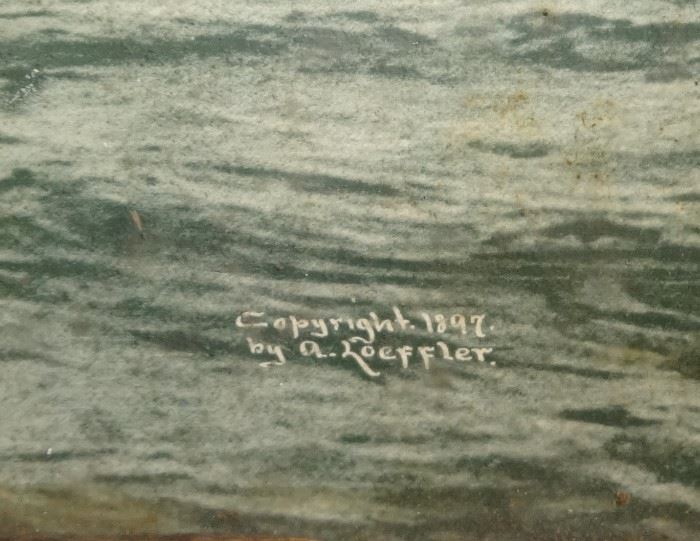 Copyright. 1897.
by A. Loeffler.